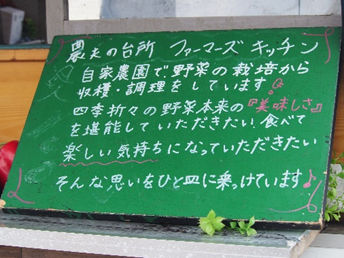 農夫の台所 ファーマーズ キッチン
自家農園で野菜の栽培から
収穫・調理をしています。
四季折々の野菜本来の『美味しさ』
を堪能していただきたい、食べて
楽しい気持ちになっていただきたい
そんな思いをひと皿に乗っけています♪